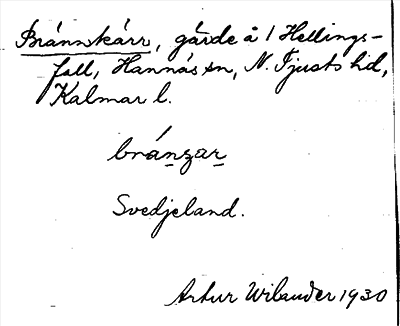 Brännskärr, gärde å 1 Hellings-
fall, Hannäs sn, N. Tjusts hd,
Kalmar l.
bránsar
Svedjeland.
Artur Wilander 1930